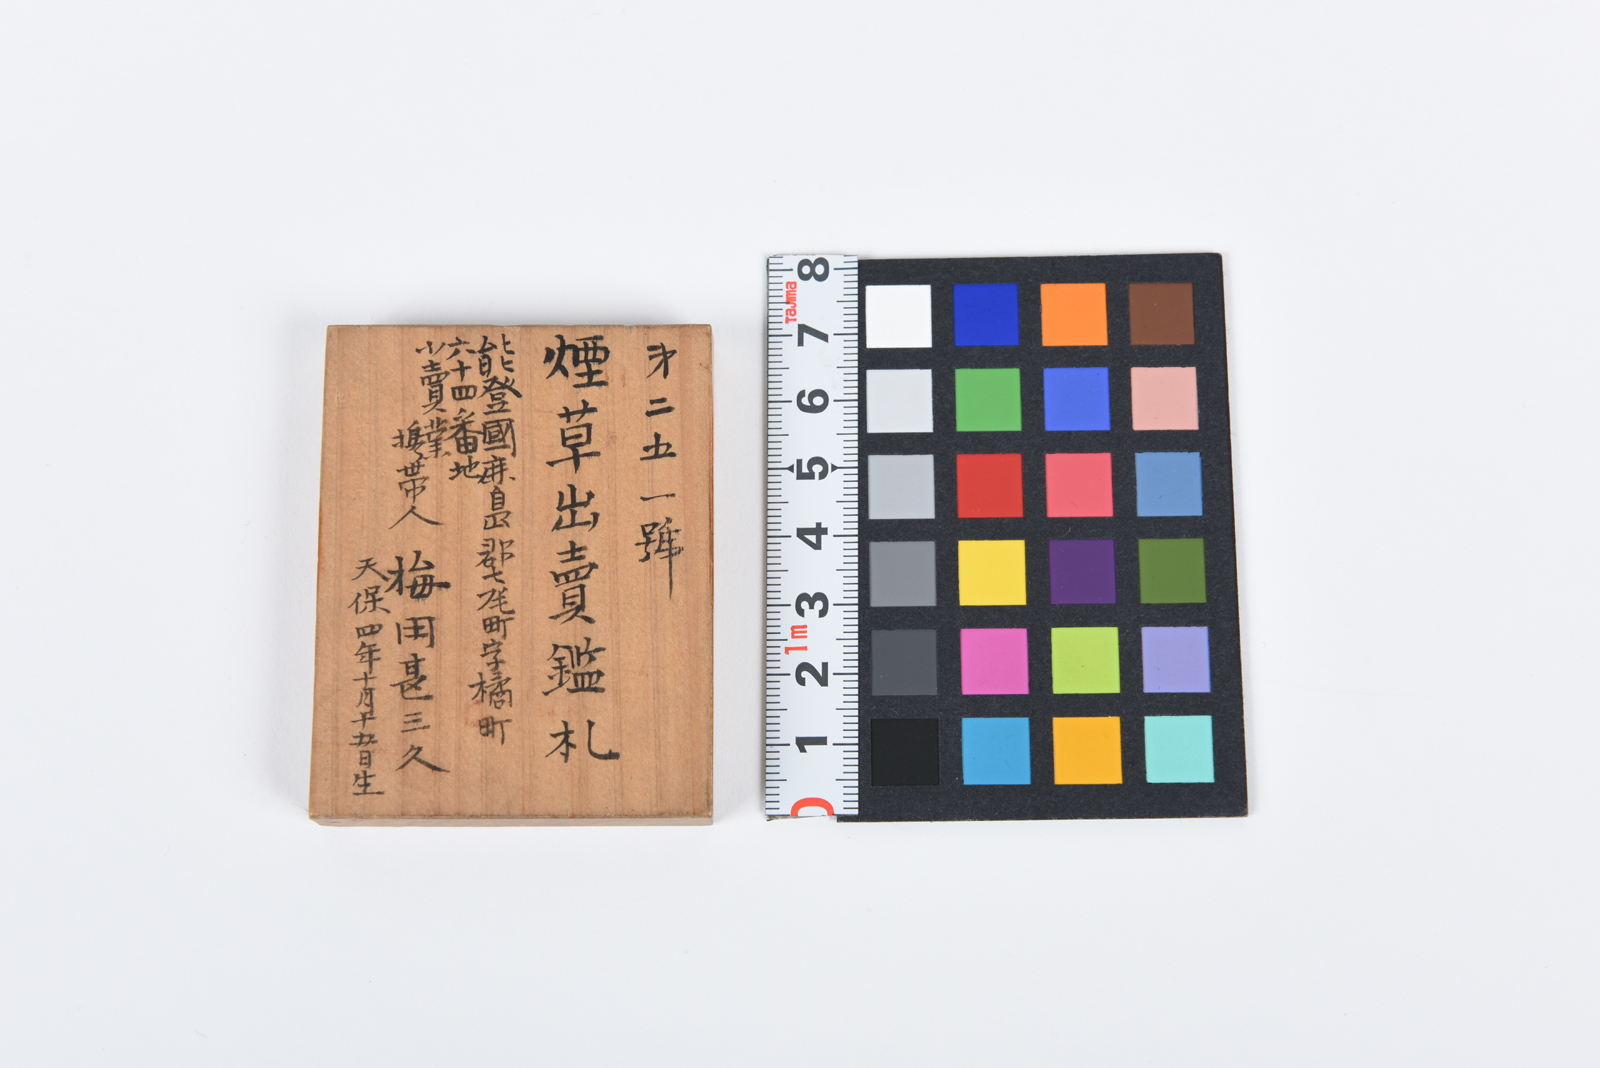 第二五一號
煙草出賣鑑札
能登國鹿島郡七尾町字橘町
六十四番地
小賣業
携帯人 梅田甚三久
天保四年十月十五日生
8
7
6
5
4
3
2
1
0
Tajima
1m